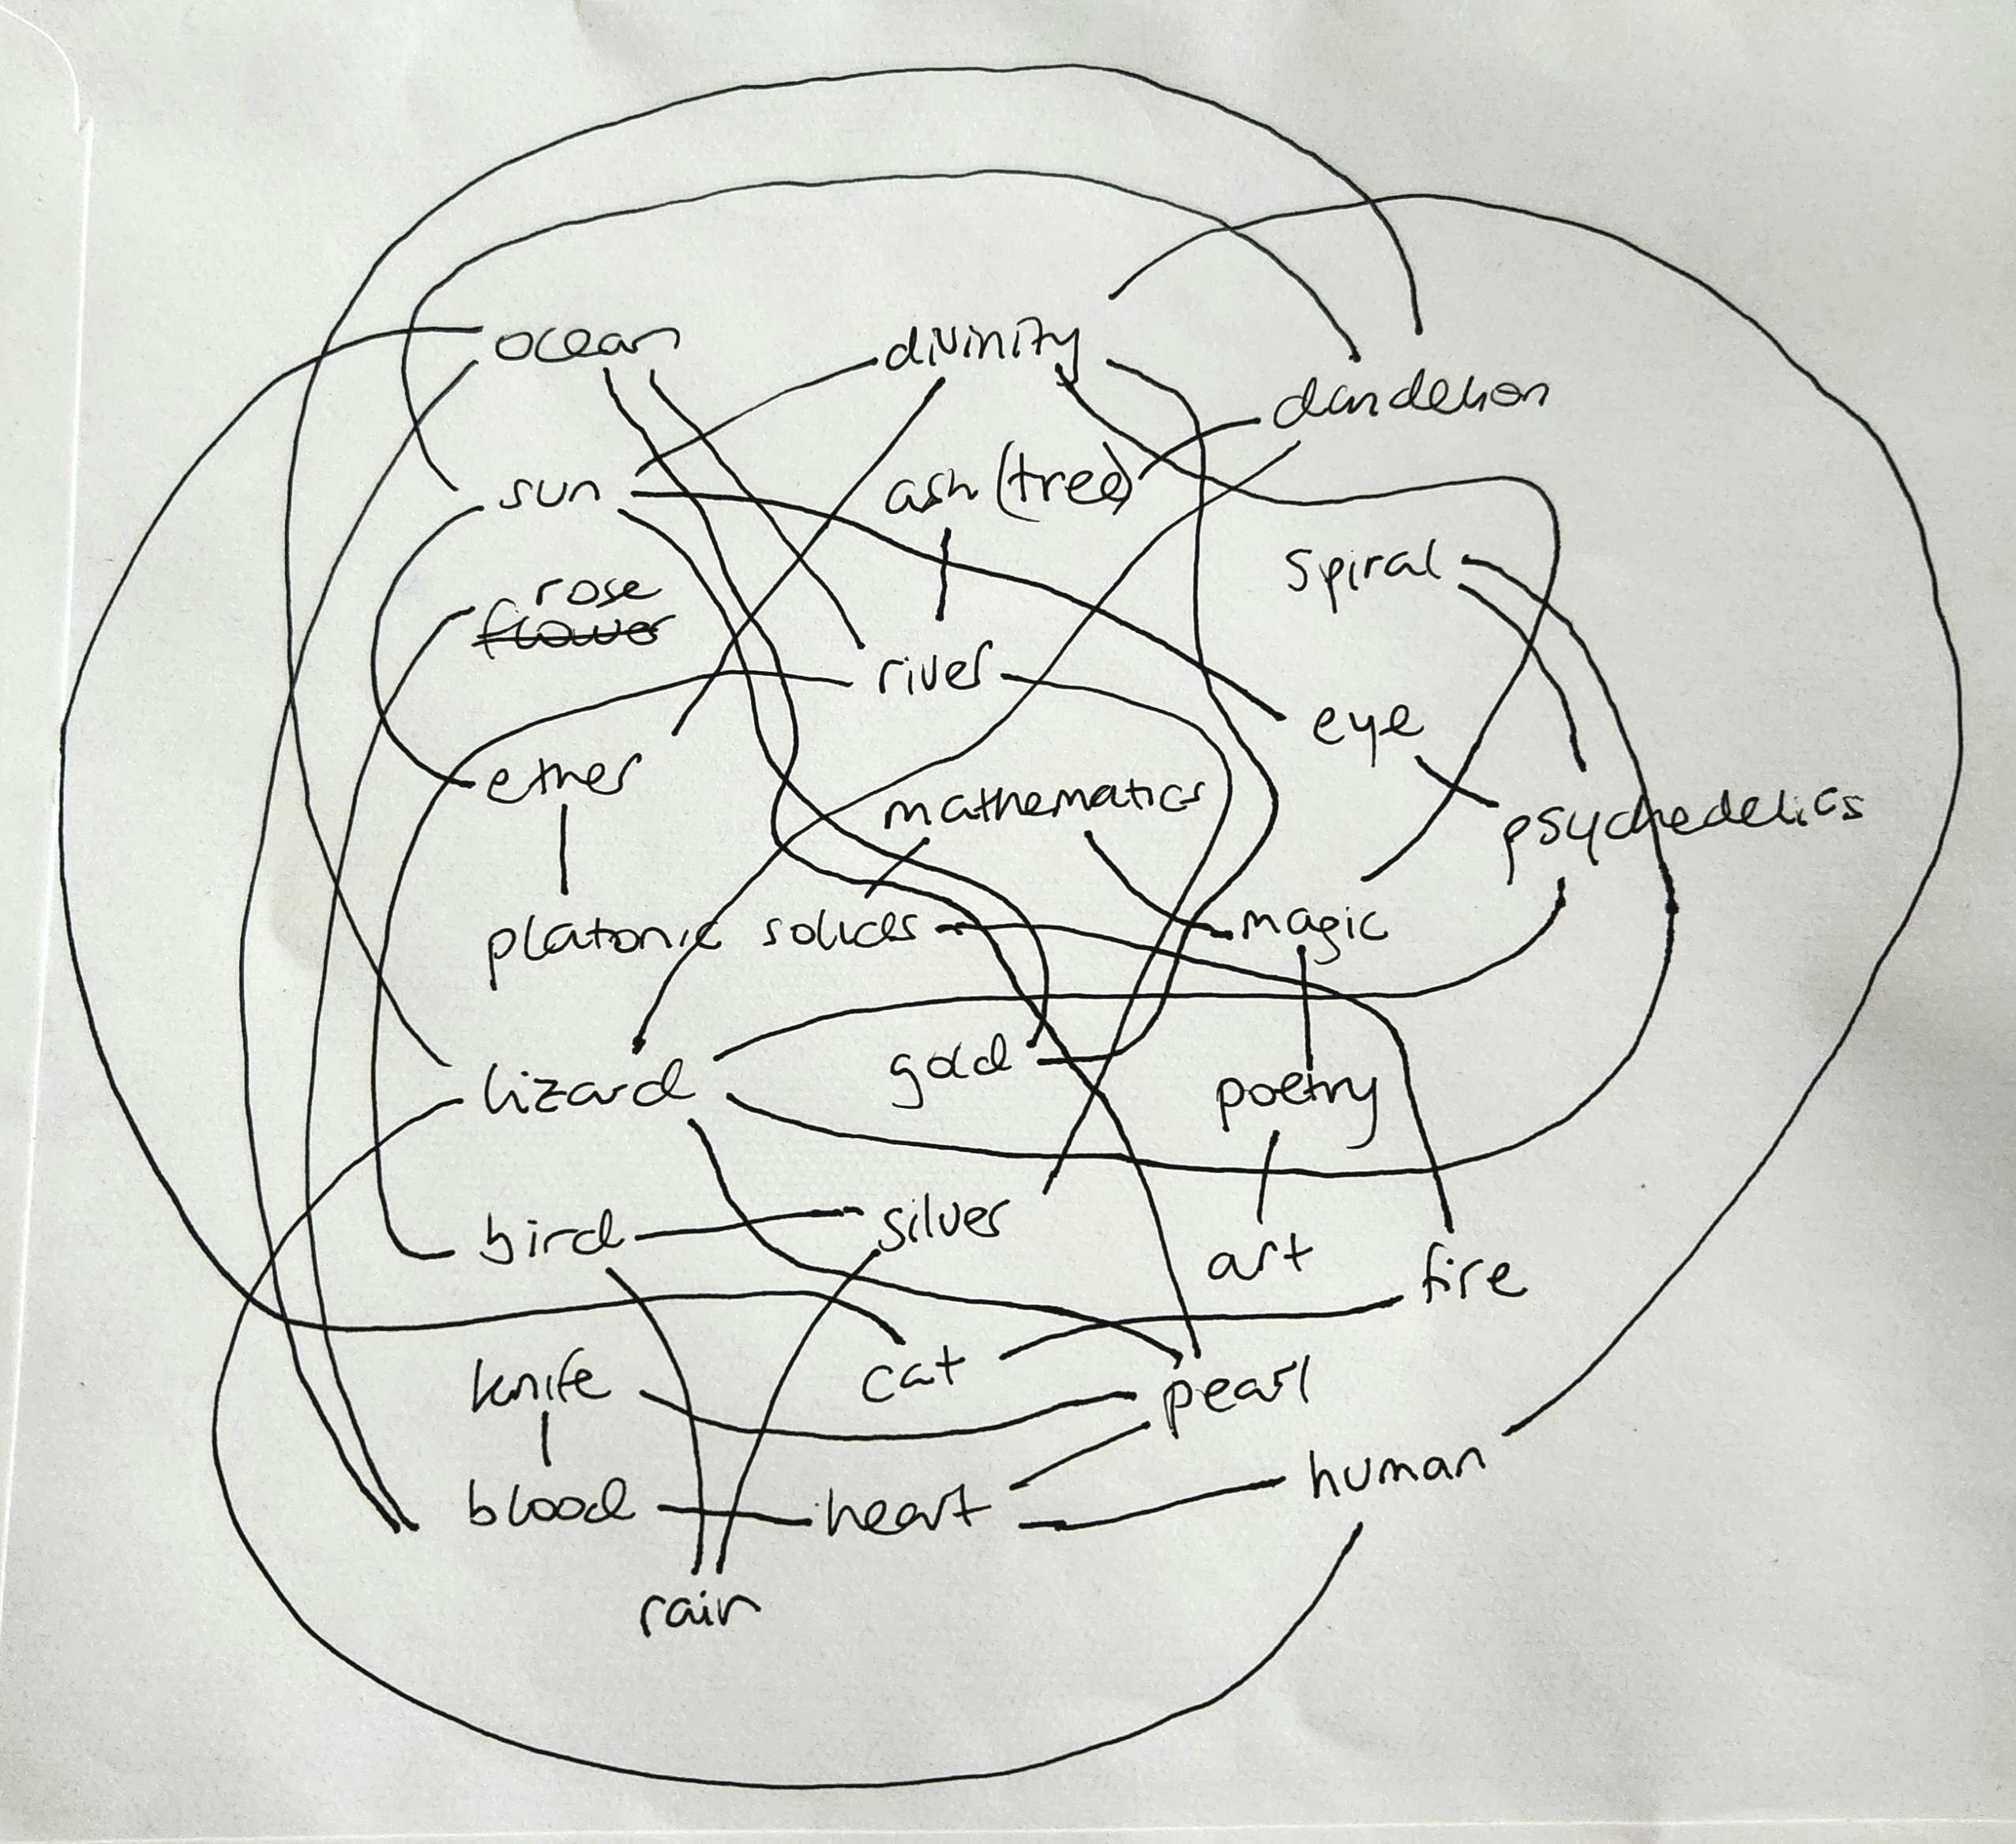 ocean
divinity
dandelion
sun
ash (tree)
spiral
rose
flower
river
eye
ether
mathematics
psychedelics
platonic solids
magic
lizard
gold
poetry
bird
silver
art
fire
knife
cat
pearl
human
blood
heart
rain